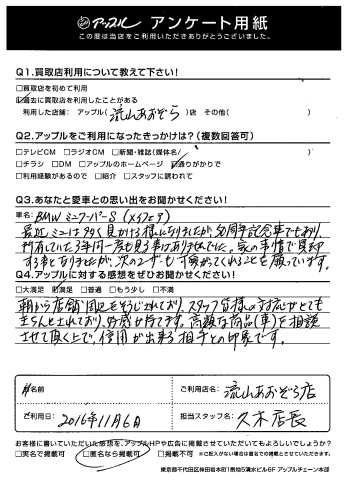 アップル アンケート用紙
この度は当店をご利用いただきありがとうございました。
Q1.買取店利用について教えて下さい!
□買取店を初めて利用
☑過去に買取店を利用したことがある
利用した店舗: アップル(流山あおぞら)店 その他( )
Q2.アップルをご利用になったきっかけは?(複数回答可)
□テレビCM □ラジオCM □新聞・雑誌(媒体名/ )
□チラシ □DM □アップルのホームページ ☑通りがかりで
□利用経験があるので □紹介 □スタッフに誘われて
Q3.あなたと愛車との思い出をお聞かせください!
車名: BMW ミニクーパーS
最近ミニは多く見かける様になりましたが、50周年記念車でもあり、
所有していた3年間一度も見る事はありませんでした。家の事情で売却
する事となりましたが、次のユーザーも可愛がってくれることを願っています。
Q4.アップルに対する感想をぜひお聞かせください!
□大満足 ☑満足 □普通 □もう少し □不満
朝から店舗周辺をそうじされており、スタッフ皆様の対応がとても
きちんとされており、好感が持てます。高額な商品(車)を相談
させて頂く上で、信用が出来る相手との印象です。
お名前
ご利用店名: 流山あおぞら店
ご利用日: 2016年11月6日
担当スタッフ名: 久木店長
お客様に書いていただいた感想を、アップルHPや広告に掲載させていただいてもよろしいでしょうか?
□実名で掲載可 □匿名なら掲載可 □掲載不可 ※ご記入がない場合は匿名での掲載とさせていただきます。
東京都千代田区神田岩本町1番地5清水ビル6F アップルチェーン本部